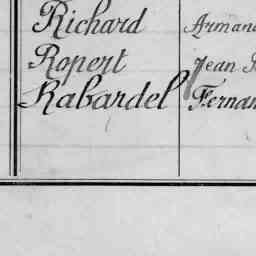 Richard Armand
Ropert Jean
Rabardel Fernan